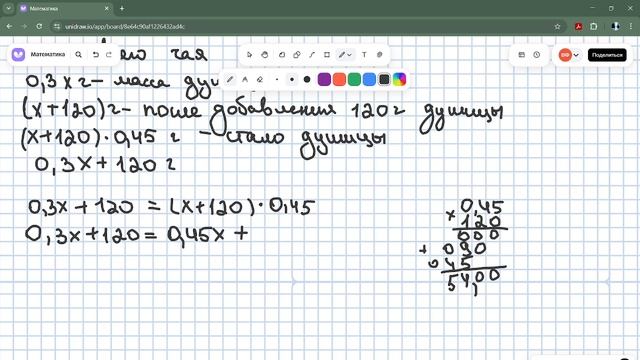 Математика
unidraw.io/app/board/8e64c90af1226432ad4c
Математика
Поделиться
чая
0,3x г – масса
(x+120) г – после добавления 120 г душицы
(x+120) · 0,45 г – стало душицы
0,3x + 120 г
0,3x + 120 = (x+120) · 0,45
0,3x + 120 = 0,45x +
0,45
× 120
000
+ 090
0 45
54,00